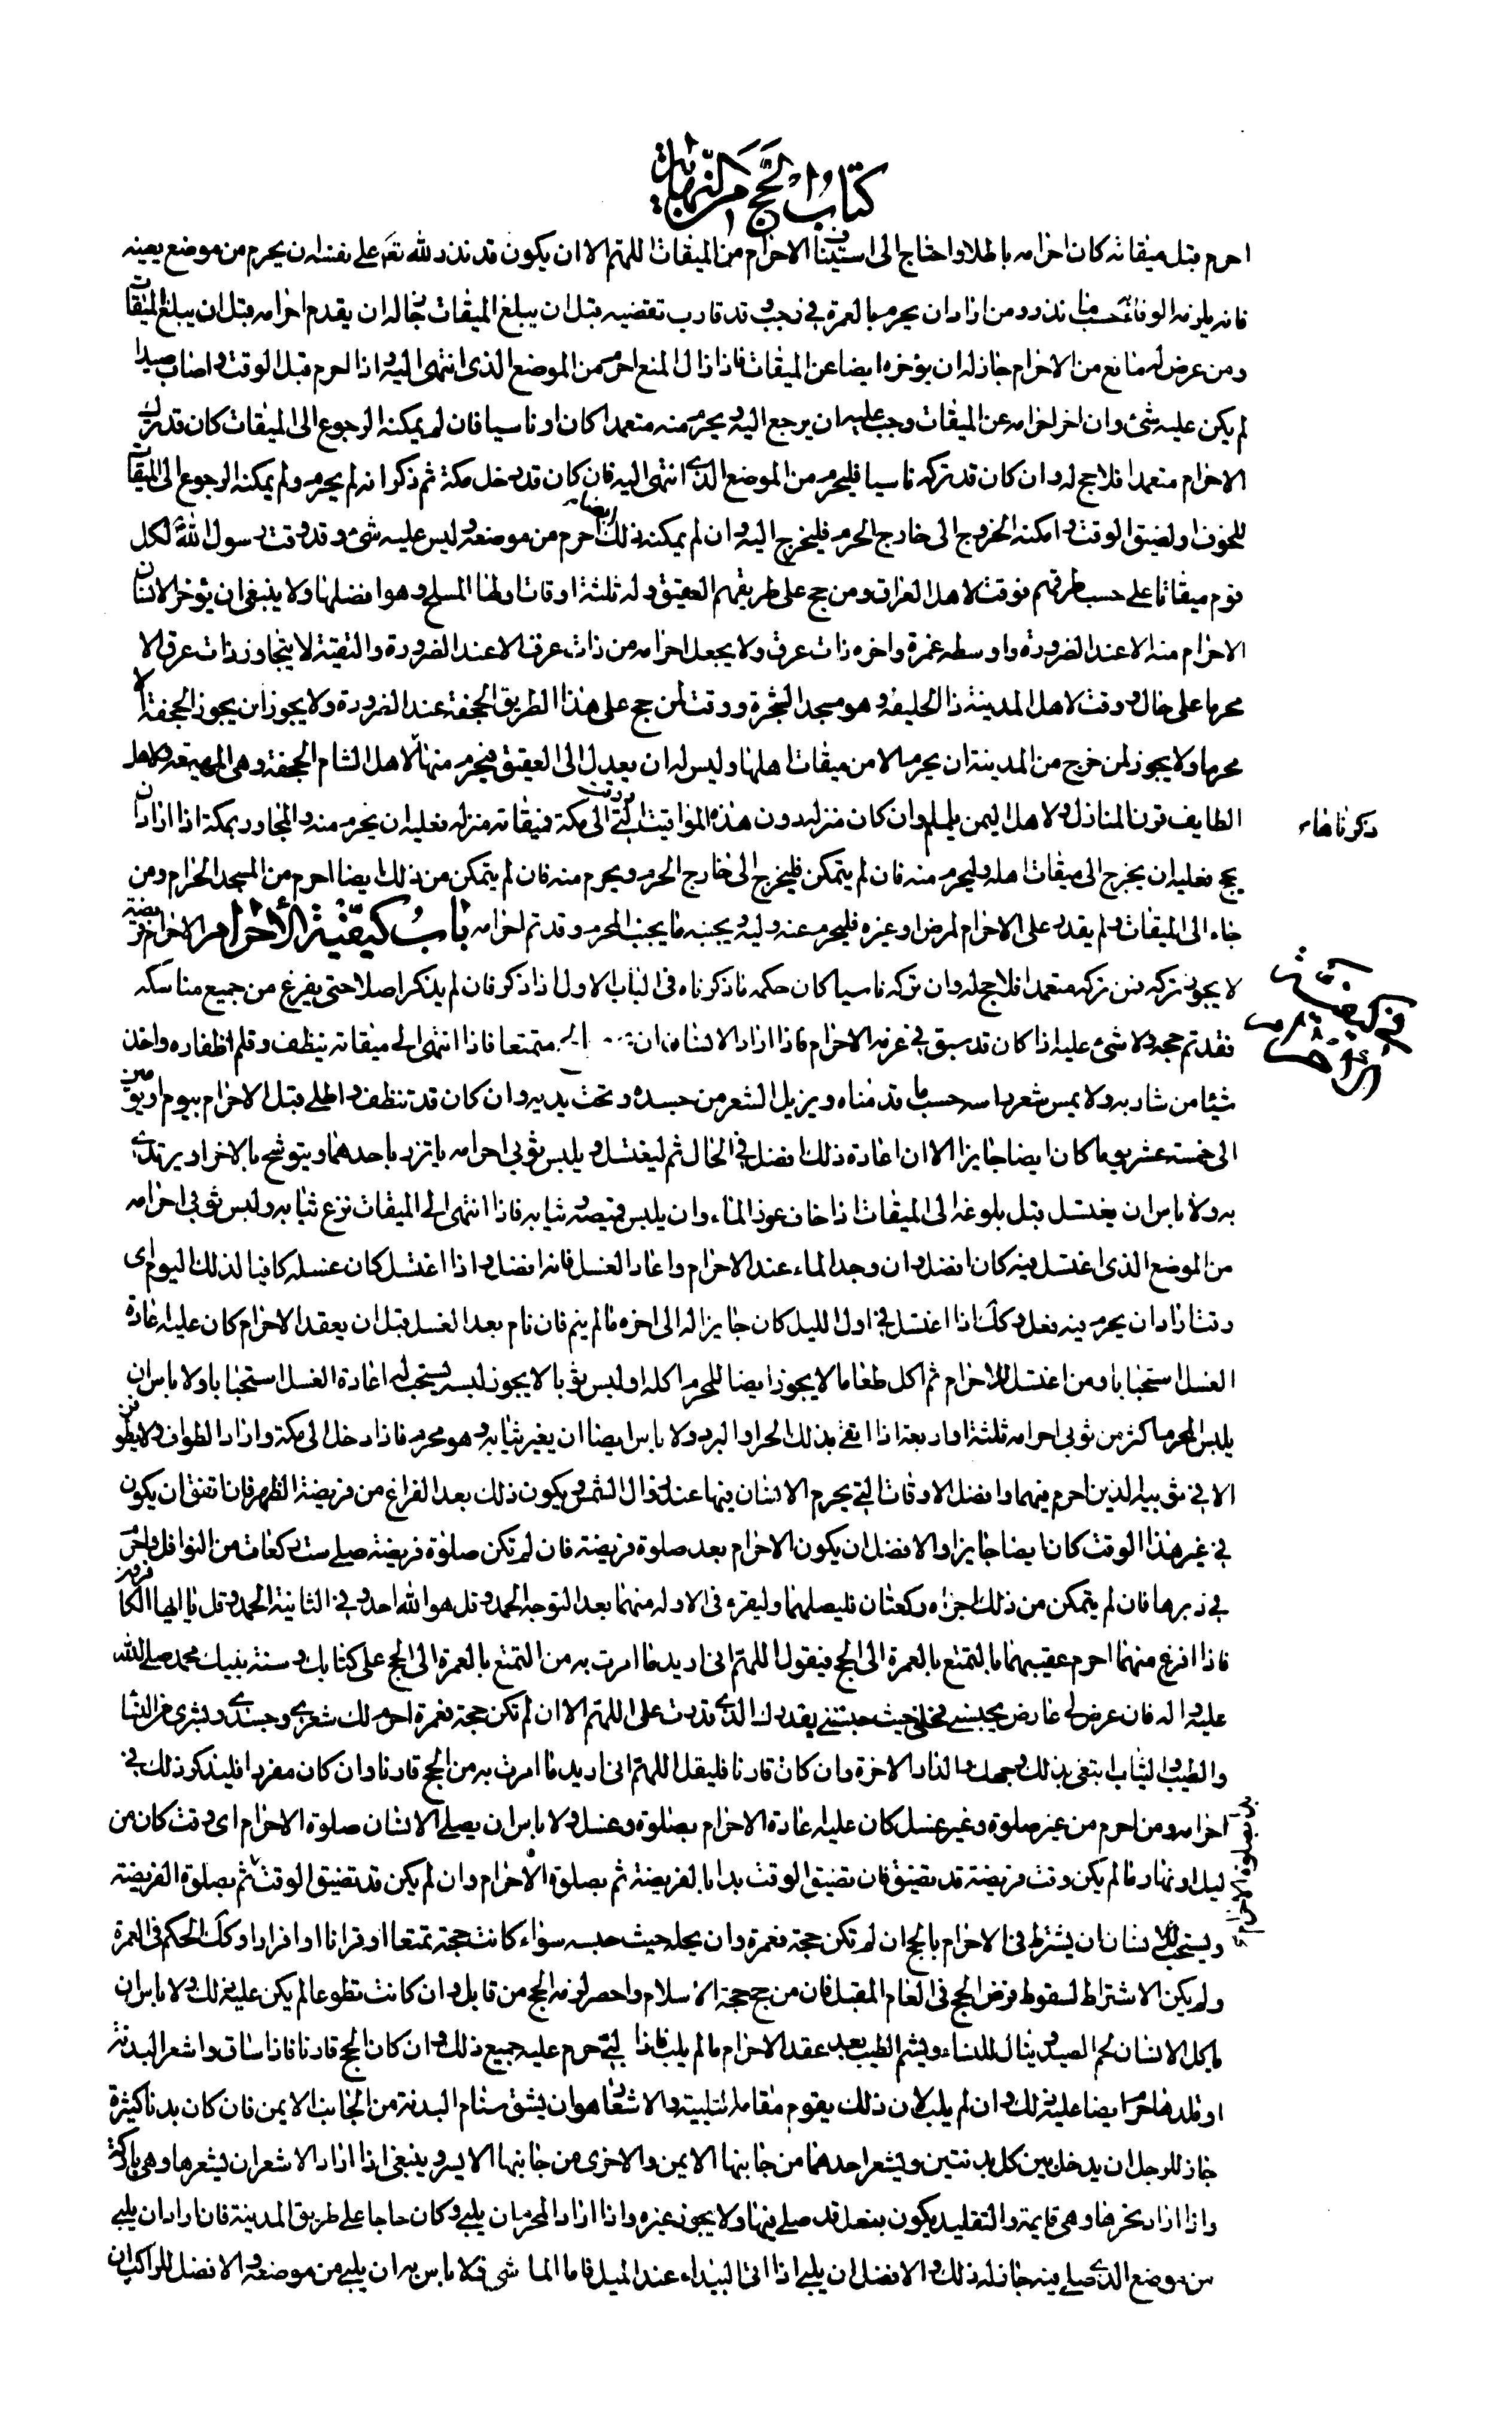 كتاب الحج من النهاية
احرم قبل ميقاته كان احرامه باطلا واحتاج الى استيناف الاحرام من الميقات اللهم الا ان يكون قد نذر لله تعالى على نفسه ان يحرم من موضع بعينه
فانه يلزمه الوفاء به حسب ما نذر ومن اراد ان يحرم بالعمرة في رجب وقد قارب تقضيه قبل ان يبلغ الميقات جاز له ان يقدم احرامه قبل ان يبلغ الميقات
ومن عرض له مانع من الاحرام جاز له ان يؤخره ايضا عن الميقات فاذا زال المنع احرم من الموضع الذى انتهى اليه واذا احرم قبل الوقت واصاب صيدا
لم يكن عليه شئ وان اخر احرامه عن الميقات وجب عليه ان يرجع اليه ويحرم منه متعمدا كان او ناسيا فان لم يمكنه الرجوع الى الميقات كان قد ترك
الاحرام متعمدا فلا حج له وان كان قد تركه ناسيا فليحرم من الموضع الذى انتهى اليه فان كان قد دخل مكة ثم ذكر انه لم يحرم ولم يمكنه الرجوع الى الميقات
للخوف او لضيق الوقت وامكنه الخروج الى خارج الحرم فليخرج اليه وان لم يمكنه ذلك ايضا احرم من موضعه وليس عليه شئ وقد وقت رسول الله لكل
قوم ميقاتا على حسب طرقهم فوقت لاهل العراق ومن حج على طريقهم العقيق وله ثلثة اوقات اولها المسلح وهو افضلها ولا ينبغى ان يؤخر الانسان
الاحرام منه الا عند الضرورة واوسطه غمرة واخره ذات عرق ولا يجعل احرامه من ذات عرق الا عند الضرورة والتقية لا يتجاوز ذات عرق الا
محرما على حال ووقت لاهل المدينة ذا الحليفة وهو مسجد الشجرة ووقت لمن حج على هذا الطريق الجحفة عند الضرورة ولا يجوز ان يجوز الجحفة الا
محرما ولا يجوز لمن خرج من المدينة ان يحرم الا من ميقات اهلها وليس له ان يعدل الى العقيق فيحرم منها لاهل الشام الجحفة وهى المهيعة ولاهل
الطايف قرن المنازل ولاهل اليمن يلملم وان كان منزله دون هذه المواقيت التى الى مكة فميقاته منزله فعليه ان يحرم منه والمجاور بمكة اذا اراد ان
ذكرناها
يحج فعليه ان يخرج الى ميقات اهله وليحرم منه فان لم يتمكن فليخرج الى خارج الحرم ويحرم منه فان لم يتمكن من ذلك ايضا احرم من المسجد الحرام ومن
جاء الى الميقات ولم يقدر على الاحرام لمرض او غيره فليحرم عنه وليه ويجنبه ما يجنب المحرم وقد تم احرامه باب كيفية الأحرام الاحرام فريضة
في كيفية الأحرام
لا يجوز تركه فمن تركه متعمدا فلا حج له وان تركه ناسيا كان حكمه ما ذكرناه فى الباب الاول اذا ذكر فان لم يذكر اصلا حتى يفرغ من جميع مناسكه
فقد تم حجه ولا شئ عليه اذا كان قد سبق فى عزمه الاحرام فاذا اراد الانسان ان متمتعا فاذا انتهى الى ميقاته ينظف وقلم اظفاره واخذ
شيئا من شاربه ولا يمس شعر راسه حسب ما قدمناه ويزيل الشعر من جسده وتحت يديه وان كان قد تنظف واطلى قبل الاحرام بيوم او يومين
الى خمسة عشر يوما كان ايضا جايزا الا ان اعادة ذلك افضل فى الحال ثم ليغتسل ويلبس ثوبى احرامه ياتزر باحدهما ويتوشح بالاخر او يرتدى
به ولا باس ان يغتسل قبل بلوغه الى الميقات اذا خاف عوز الماء وان يلبس قميصه وثيابه فاذا انتهى الى الميقات نزع ثيابه ولبس ثوبى احرامه
من الموضع الذى اغتسل فيه كان افضل وان وجد الماء عند الاحرام واعاد الغسل فانه افضل واذا اغتسل كان غسله كافيا لذلك اليوم اى
وقت اراد ان يحرم فيه فعل وكك اذا اغتسل فى اول الليل كان جايزا له الى اخره ما لم ينم فان نام بعد الغسل قبل ان يعقد الاحرام كان عليه اعادة
الغسل استحبابا ومن اغتسل للاحرام ثم اكل طعاما لا يجوز ايضا للمحرم اكله او لبس ثوبا لا يجوز لبسه يستحب له اعادة الغسل استحبابا ولا باس ان
يلبس المحرم اكثر من ثوبى احرامه ثلثة او اربعة اذا اتقى بذلك الحر او البرد ولا باس ايضا ان يغير ثيابه وهو محرم فاذا دخل الى مكة واراد الطواف ولا يطوفن
الا فى ثوبيه الذين احرم فيهما وافضل الاوقات التى يحرم الانسان فيها عند زوال الشمس ويكون ذلك بعد الفراغ من فريضة الظهر فان اتفق ان يكون
فى غير هذا الوقت كان ايضا جايزا والافضل ان يكون الاحرام بعد صلوة فريضة فان لم تكن صلوة فريضة صلى ست ركعات من النوافل واحرم
فى دبرها فان لم يتمكن من ذلك اجزاه ركعتان فليصلهما وليقرء فى الاوله منهما بعد التوجه الحمد وقل هو الله احد وفى الثانية الحمد وقل يا ايها الكافرون
فاذا افرغ منهما احرم عقيبهما بالتمتع بالعمرة الى الحج فيقول اللهم انى اريد ما امرت به من التمتع بالعمرة الى الحج على كتابك وسنة نبيك محمد صلى الله
عليه واله فان عرض لى عارض يحبسنى فخلنى حيث حبستنى بقدرك الذى قدرت على اللهم الا ان لم تكن حجة فعمرة احرم لك شعرى وجسدى وبشرى من النساء
والطيب والثياب ابتغى بذلك وجهك والدار الاخرة وان كان قارنا فليقل اللهم انى اريد ما امرت به من الحج قارنا وان كان مفردا فليذكر ذلك فى
احرامه ومن احرم من غير صلوة وغير غسل كان عليه اعادة الاحرام بصلوة وغسل ولا باس ان يصلى الانسان صلوة الاحرام اى وقت كان من
ليل او نهار ما لم يكن وقت فريضة قد تضيق فان تضيق الوقت بدا بالفريضة ثم بصلوة الاحرام وان لم يكن قد تضيق الوقت ثم بصلوة الفريضة
بدا بصلوة الاحرام
ويستحب للانسان ان يشترط فى الاحرام بالحج ان لم تكن حجة فعمرة وان يحله حيث حبسه سواء كانت حجة تمتعا او قرانا او افرادا وكك الحكم فى العمرة
ولم يكن الاشتراط لسقوط فرض الحج فى العام المقبل فان من حج حجة الاسلام واحصر لزمه الحج من قابل وان كانت تطوعا لم يكن عليه ذلك ولا باس ان
ياكل الانسان لحم الصيد وينال النساء ويشم الطيب بعد عقد الاحرام ما لم يلب فاذا لبى حرم عليه جميع ذلك وان كان الحج قارنا فاذا ساق واشعر البدنة
او قلدها حرم ايضا عليه ذلك وان لم يلب لان ذلك يقوم مقام التلبية والاشعار هو ان يشق سنام البدنة من الجانب الايمن فان كان بدنا كثيرة
جاز للرجل ان يدخل بين كل بدنتين ويشعر احدهما من جانبها الايمن والاخرى من جانبها الايسر وينبغى اذا اراد الاشعار ان يشعرها وهى باركة
واذا اراد نحرها وهى قايمة والتقليد يكون بنعل قد صلى فيها ولا يجوز غيره واذا اراد المحرم ان يلبى وكان حاجا على طريق المدينة فان اراد ان يلبى
من موضع الذى صلى فيه جاز له ذلك والافضل ان يلبى اذا اتى البيداء عند الميل فاما الماشى فلا باس به ان يلبى من موضعه والافضل للراكب ان